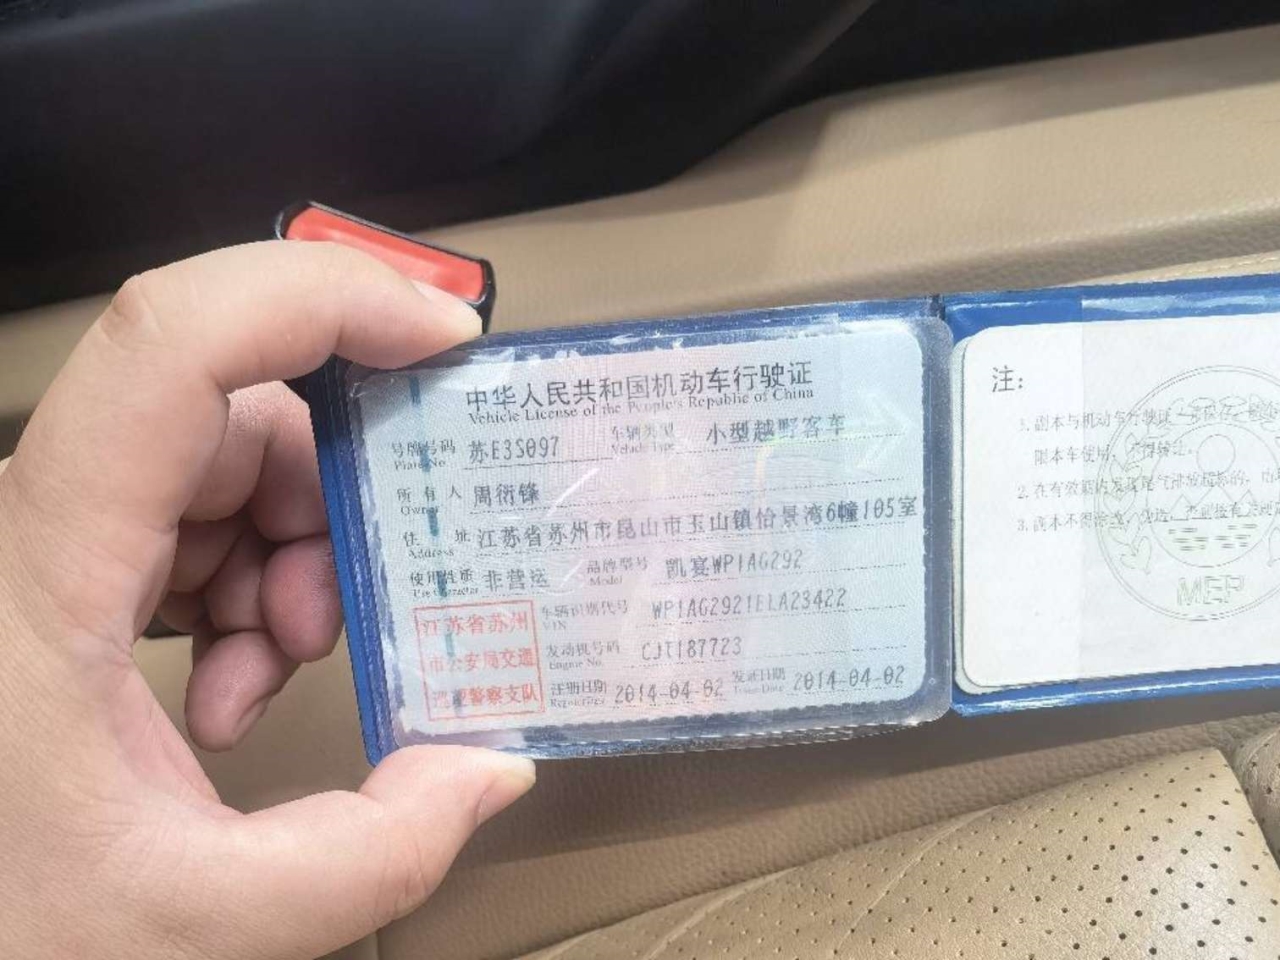 中华人民共和国机动车行驶证
Vehicle License of the People's Republic of China
号牌号码 苏E3S097 车辆类型 小型越野客车
Plate No. Vehicle Type
所有人 周衍锋
Owner
住址 江苏省苏州市昆山市玉山镇怡景湾6幢105室
Address
使用性质 非营运 品牌型号 凯宴WP1AG292
Use Character Model
车辆识别代号 WP1AG2921ELA23422
VIN
发动机号码 CJT187723
Engine No.
注册日期 2014-04-02 发证日期 2014-04-02
Register Date Issue Date
江苏省苏州
市公安局交通
巡逻警察支队
注：
1. 副本与机动车行驶证
限本车使用，不得转让。
2. 在有效期内
3. 副本不得涂改、
MEP